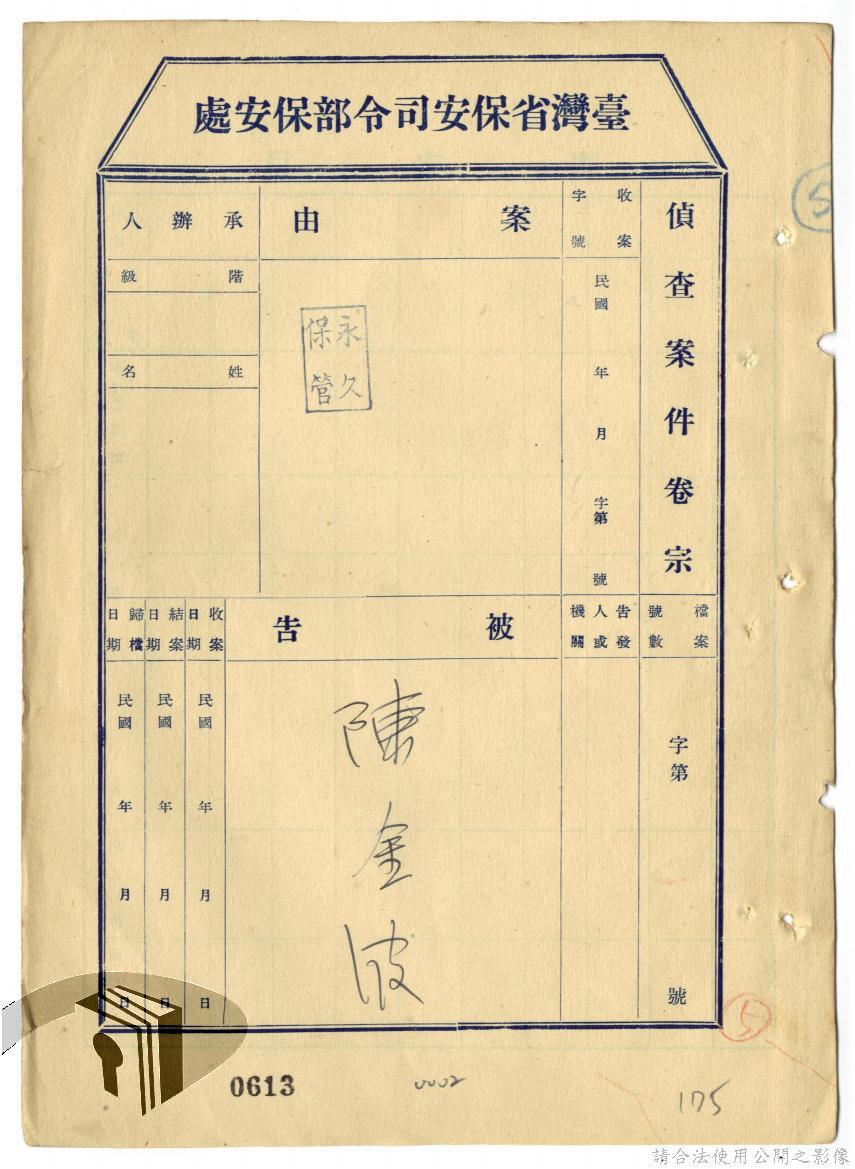 臺灣省保安司令部保安處
偵查案件卷宗
收案
字號
民國 年 月 字第 號
案由
永久
保管
承辦人
階級
姓名
檔案
號數
字第 號
告發
人或
機關
被告
陳金波
收案
日期
民國 年 月 日
結案
日期
民國 年 月 日
歸檔
日期
民國 年 月 日
5
5
0613
0002
175
請合法使用公開之影像